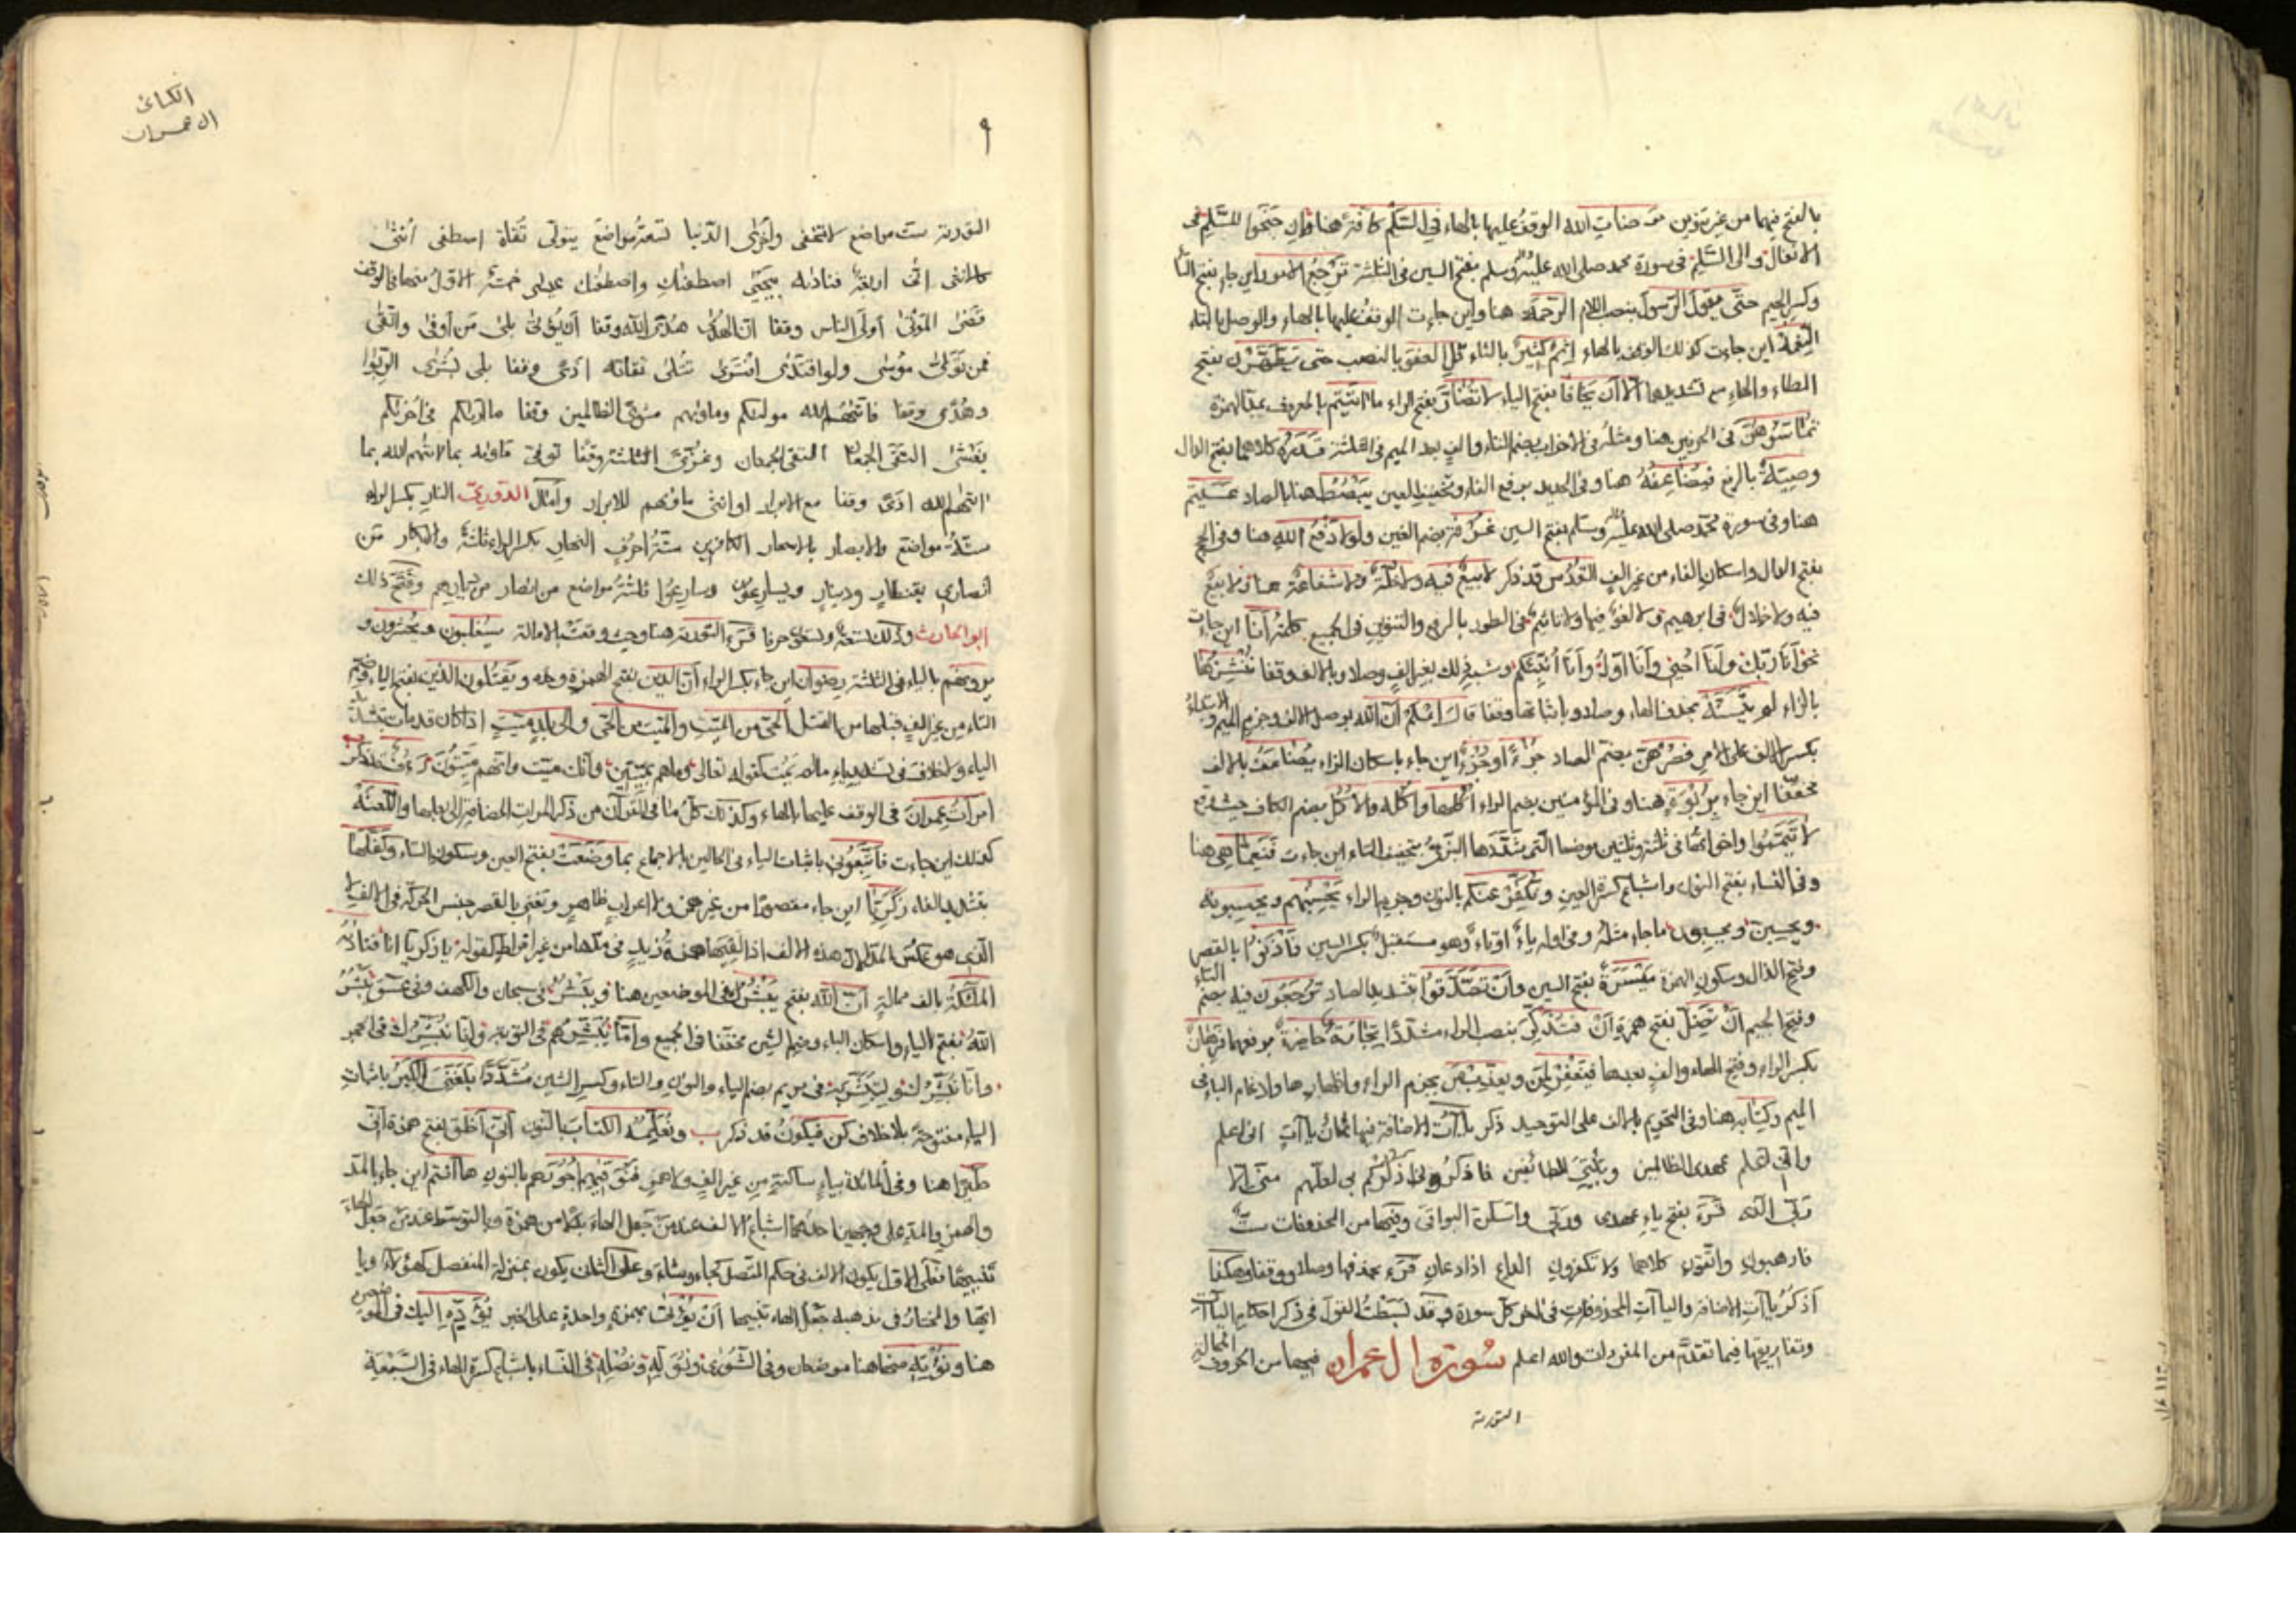 بالفتح فيهما من غير تنوين مرضات الله الوقف عليها بالهاء في السَّلم كافة هنا وان جنحوا للسَّلم في
الانفال والى السَّلم في سورة محمد صلى الله عليه وسلم بفتح السين في الثلثة تَرجِعُ الامور اين جاء بفتح التاء
وكسر الجيم حتّى يقولَ الرسول بنصب اللام الرحمة هنا واين جاءت الوقف عليها بالهاء والوصل بالتاء
اين جاءت كذلك الوقف بالهاء اثم كثير بالثاء قل العفوَ بالنصب حتى يطَّهَّرن بفتح
الطاء والهاء مع تشديدهما الا ان يَخافا بفتح الياء لا تضارَّ بفتح الراء ما اتيتم بالمعروف بمد الهمزة
تُماسّوهن في الحرفين هنا ومثله في الاحزاب بضم التاء والف بعد الميم في الثلثة قدَره كلاهما بفتح الدال
وصيةٌ بالرفع فيضاعفُه هنا وفي الحديد برفع الفاء وتخفيف العين يبصط هنا بالصاد عسَيتم
هنا وفي سورة محمد صلى الله عليه وسلم بفتح السين غُرفة بضم الغين ولولا دَفْعُ الله هنا وفي الحج
بفتح الدال واسكان الفاء من غير الف القدس قد ذكر لا بيعٌ فيه ولا خلةٌ ولا شفاعةٌ هنا ولا بيع
فيه ولا خلال في ابرهيم ولا لغو فيها ولا تاثيم في الطور بالرفع والتنوين في الجميع كلمة انا اين جاءت
نحو أنا ربك وأنا احيي وأنا اوّل وأنا أنبئكم وشبه ذلك بغير الف وصلا وبالالف وقفا ننشزها
بالزاء لم يتسنَّه بحذف الهاء وصلا وباثباتها وقفا قال اعلم انّ الله بوصل الالف وجزم الميم والابتداء
بكسر الالف على الامر فصُرهن بضم الصاد جزءا او جزء اين جاء باسكان الزاء يضاعف بالالف
مخففا اين جاء برُبوة هنا وفي المؤمنين بضم الراء اُكُلها واُكُله والاُكُل بضم الكاف حيث وقع
لا تيمموا واخواتها في ثلثة وثلثين موضعا التي شدَّدها البزي بتخفيف التاء اين جاءت فنَعِمّا هي هنا
وفي النساء بفتح النون واشباع كسرة العين ونكفرْ عنكم بالنون وجزم الراء يحسِبهم ويحسبونه
ويحسبن ويحسبون ما جاء مثله وفي اوله ياءٌ او تاءٌ وهو مستقبل بكسر السين فأذنوا بالقصر
وفتح الذال وسكون الهمزة ميسَرة بفتح السين وأن تصَّدقوا بتشديد الصاد تُرجَعون فيه بضم التاء
وفتح الجيم أنْ تضل بفتح همزة أنْ فتذكّرَ بنصب الراء مشددا تجارةٌ حاضرةٌ برفعهما فرِهان
بكسر الراء وفتح الهاء والف بعدها فيغفرْ لمن ويعذبْ من بجزم الراء واظهارها وادغام الباء في
الميم وكتابه هنا وفي التحريم بالالف على التوحيد ذكر يا آت الاضافة فيها ثمان يا آت اني اعلم
واني اعلم عهدى الظالمين وبيتي للطائفين فاذكروني اذكركم بي لعلهم منى الا
ربّي الذي قرء بفتح ياء عهدى وربّي واسكن البواقي وفيها من المحذوفات ستٌ
فارهبون واتقون كلاهما ولا تكفرون الداع اذا دعان قرء بحذفها وصلا ووقفا وهكذا
اذكر يا آت الاضافة واليا آت المحذوفات في اخر كل سورة وقد بسطت القول في ذكر احكام اليا آت
وتفاريقها فيما تقدّم من المفردات والله اعلم سورة ال عمران فيها من الحروف الممالة
التورية
الكسائى
ال عمران
٩
التورية ست مواضع لا تخفى واُخرى الدّنيا تسعة مواضع يتولى تُقاة اصطفى اُنثى
كالانثى انّى اربعة فنادته بيحيى اصطفيك واصطفيك عيسى خمسة الاوّل منها في الوقف
قضى الموتى أولى الناس وقفا ان الهدى هدى الله وقفا ان يؤتى بلى من أوفى واتّقى
فمن تولى موسى ولو افتدى افترى تتلى تقاته اذى وقفا بلى بُشرى الربوا
وهُدًى وقفا فاتيهم الله موليكم وماويهم مثوى الظالمين وقفا ما اريكم في اخريكم
يغشى التقى الجمعان التقى الجمعان وغُزّى الثلثة وقفًا توفى ماويه بما اتيهم الله بما
اتيهم الله اذى وقفا مع الابرار او انثى ماويهم للابرار وامال الدورى النار بكسر الراء
ستة مواضع والابصار بالاسحار الكافرين ستة احرف النهار بكسر الراء ثلثة والابكار من
انصارى بقنطار ودينار ويسارعون وسارعوا ثلثة مواضع من انصار من ديارهم وفَتَحَ ذلك
ابو الحارث وذلك تسعة وتسعون حرفا قرء التورية هنا وحيث وقعت بالامالة سيُغلبون ويحشرون و
يرونهم بالياء في الثلثة رِضوان اين جاء بكسر الراء أنّ الدين بفتح الهمزة ويَقتلون الذين بفتح الياء وضم
التاء من غير الف قبلها من القتل الحيّ من الميّت والميّت من الحيّ والى بلد ميّت اذا كان قد مات بتشديد
الياء ولا خلاف في تشديد ياء مالم يمت كقوله تعالى وما هو بميّت وانك ميّت وانهم ميّتون
امرأت عمران في الوقف عليها بالهاء وكذلك كل ما في القرآن من ذكر المرأت المضافة الى بعلها واللعنة
كذلك اين جاءت فاتّبعوني باثبات الياء في الحالين بالاجماع بما وضَعَتْ بفتح العين وسكون التاء وكفّلها
بتشديد الفاء زكريّا اين جاء مقصورًا من غير همز ولا اعراب ظاهر
المليكة بالف ممالة أنّ الله بفتح يَبْشُرك في الموضعين هنا ويَبْشُر في سبحان والكهف وفي عسق يَبْشُرُ
الله بفتح الياء واسكان الباء وضم الشين مخففا في الجميع وامّا يُبشّرهم في التوبة وانّا نبشّرك في الحجر
وانّا نبشّرك ولتبشّر به في مريم بضم الياء والنون والتاء وكسر الشين مشدّدًا بلغني الكبر باثبات
الياء مفتوحة بلا خلاف كن فيكونُ قد ذكر ب ونعلّمه الكتاب بالنون أنّي اخلق بفتح همزة أنّي
طيرا هنا وفي المائدة بياء ساكنة من غير الف ولا همز فنوفّيهم اجورهم بالنون ها أنتم اين جاء بالمد
والهمز والمد على وجهين احدهما اشباع الالف عند من جعل الهاء بدلا من همزة والتوسط عند من جعل الهاء
تنبيهًا فعلى الاوّل يكون الالف في حكم المتّصل كجاء وشاء وعلى الثاني يكون بمنزلة المنفصل كهؤلاء ويا
ايّها والمختار في مذهبه جعل الهاء تنبيها أنْ يؤتى بهمزة واحدة على الخبر يؤدّهِ اليك في الموضعين
هنا ونؤتهِ منها هنا موضعان وفي الشورى ونولّهِ ونصلهِ في النساء باشباع كسرة الهاء في السبعة